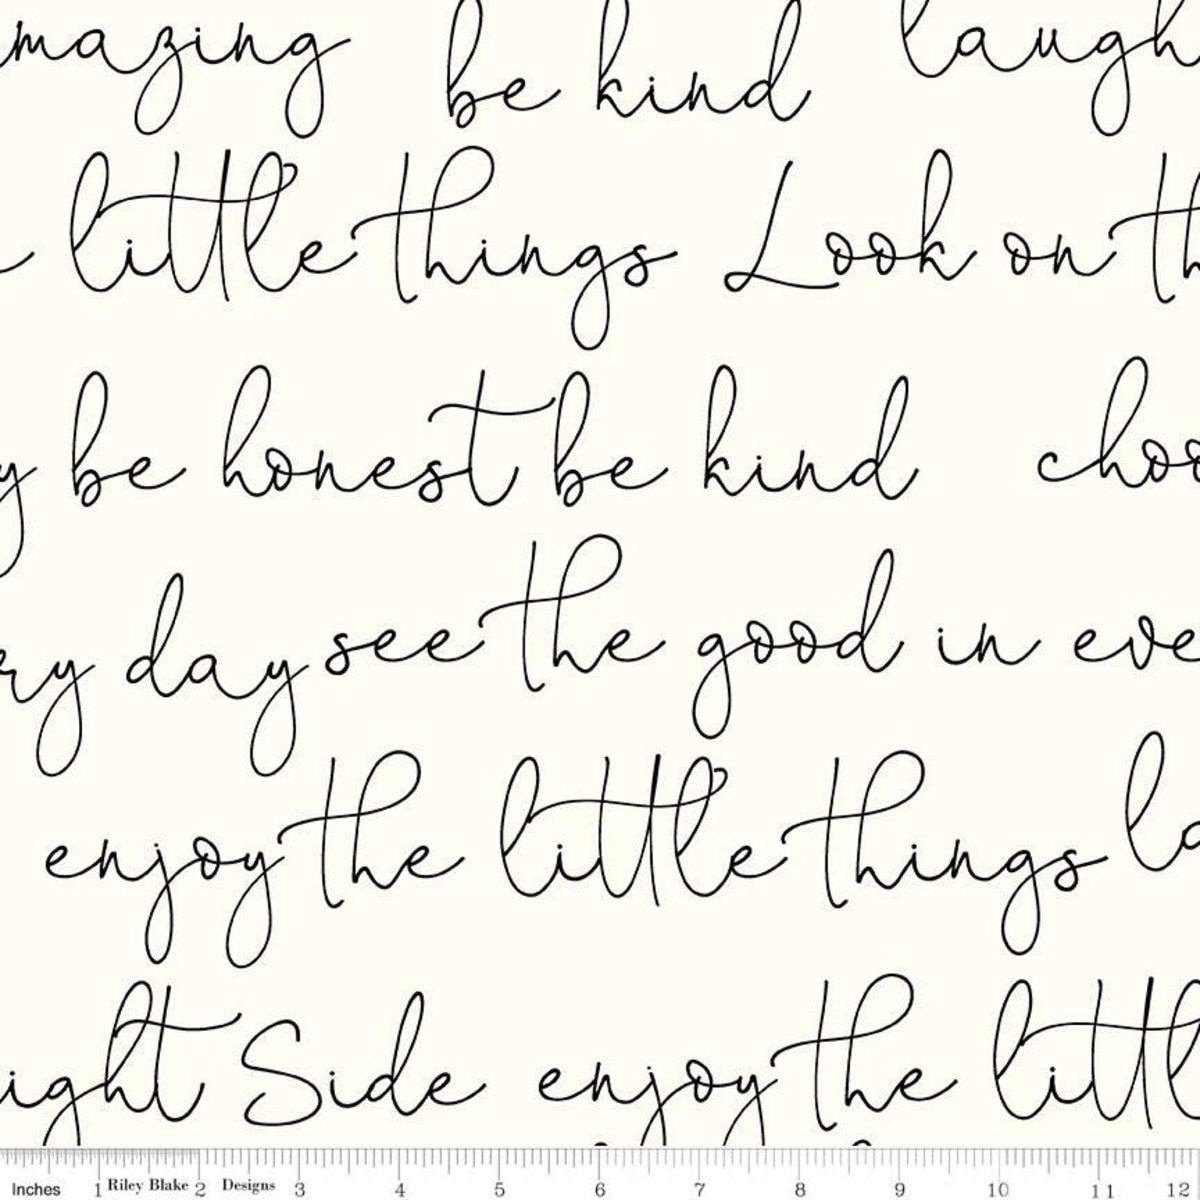 mazing be kind laugh
little things Look on th
y be honest be kind choo
ry day see the good in eve
enjoy the little things la
ight Side enjoy the littl
Inches 1 Riley Blake 2 Designs 3 4 5 6 7 8 9 10 11 12